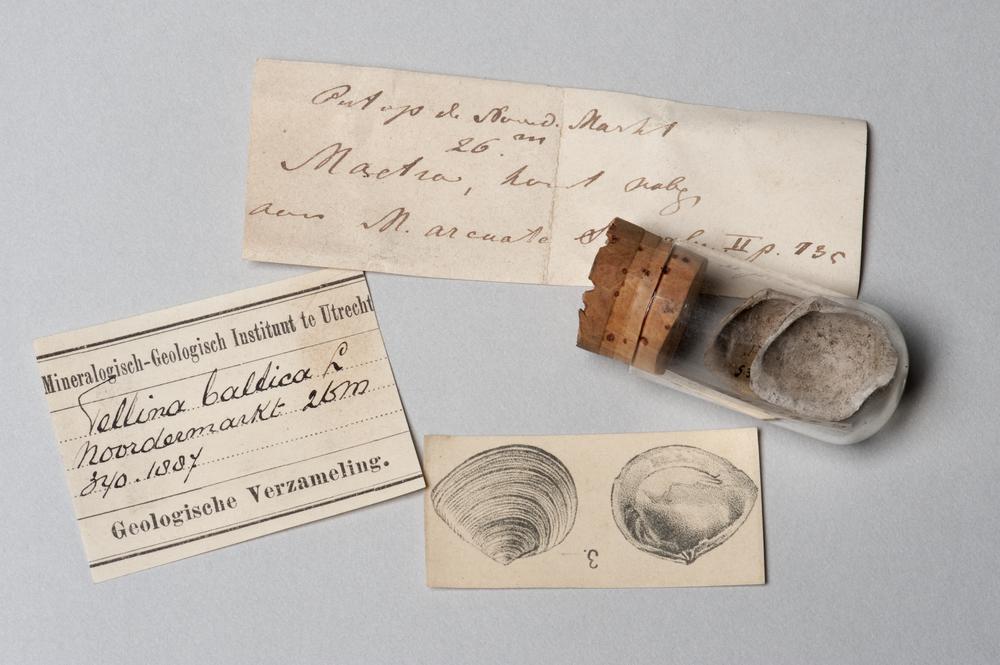 Put op de Noord. Markt
26. m
Mactra, komt nabij
aan M. arcuata II p. 135
Mineralogisch-Geologisch Instituut te Utrecht
Tellina baltica L
Noordermarkt 26m
1887
Geologische Verzameling.
3.